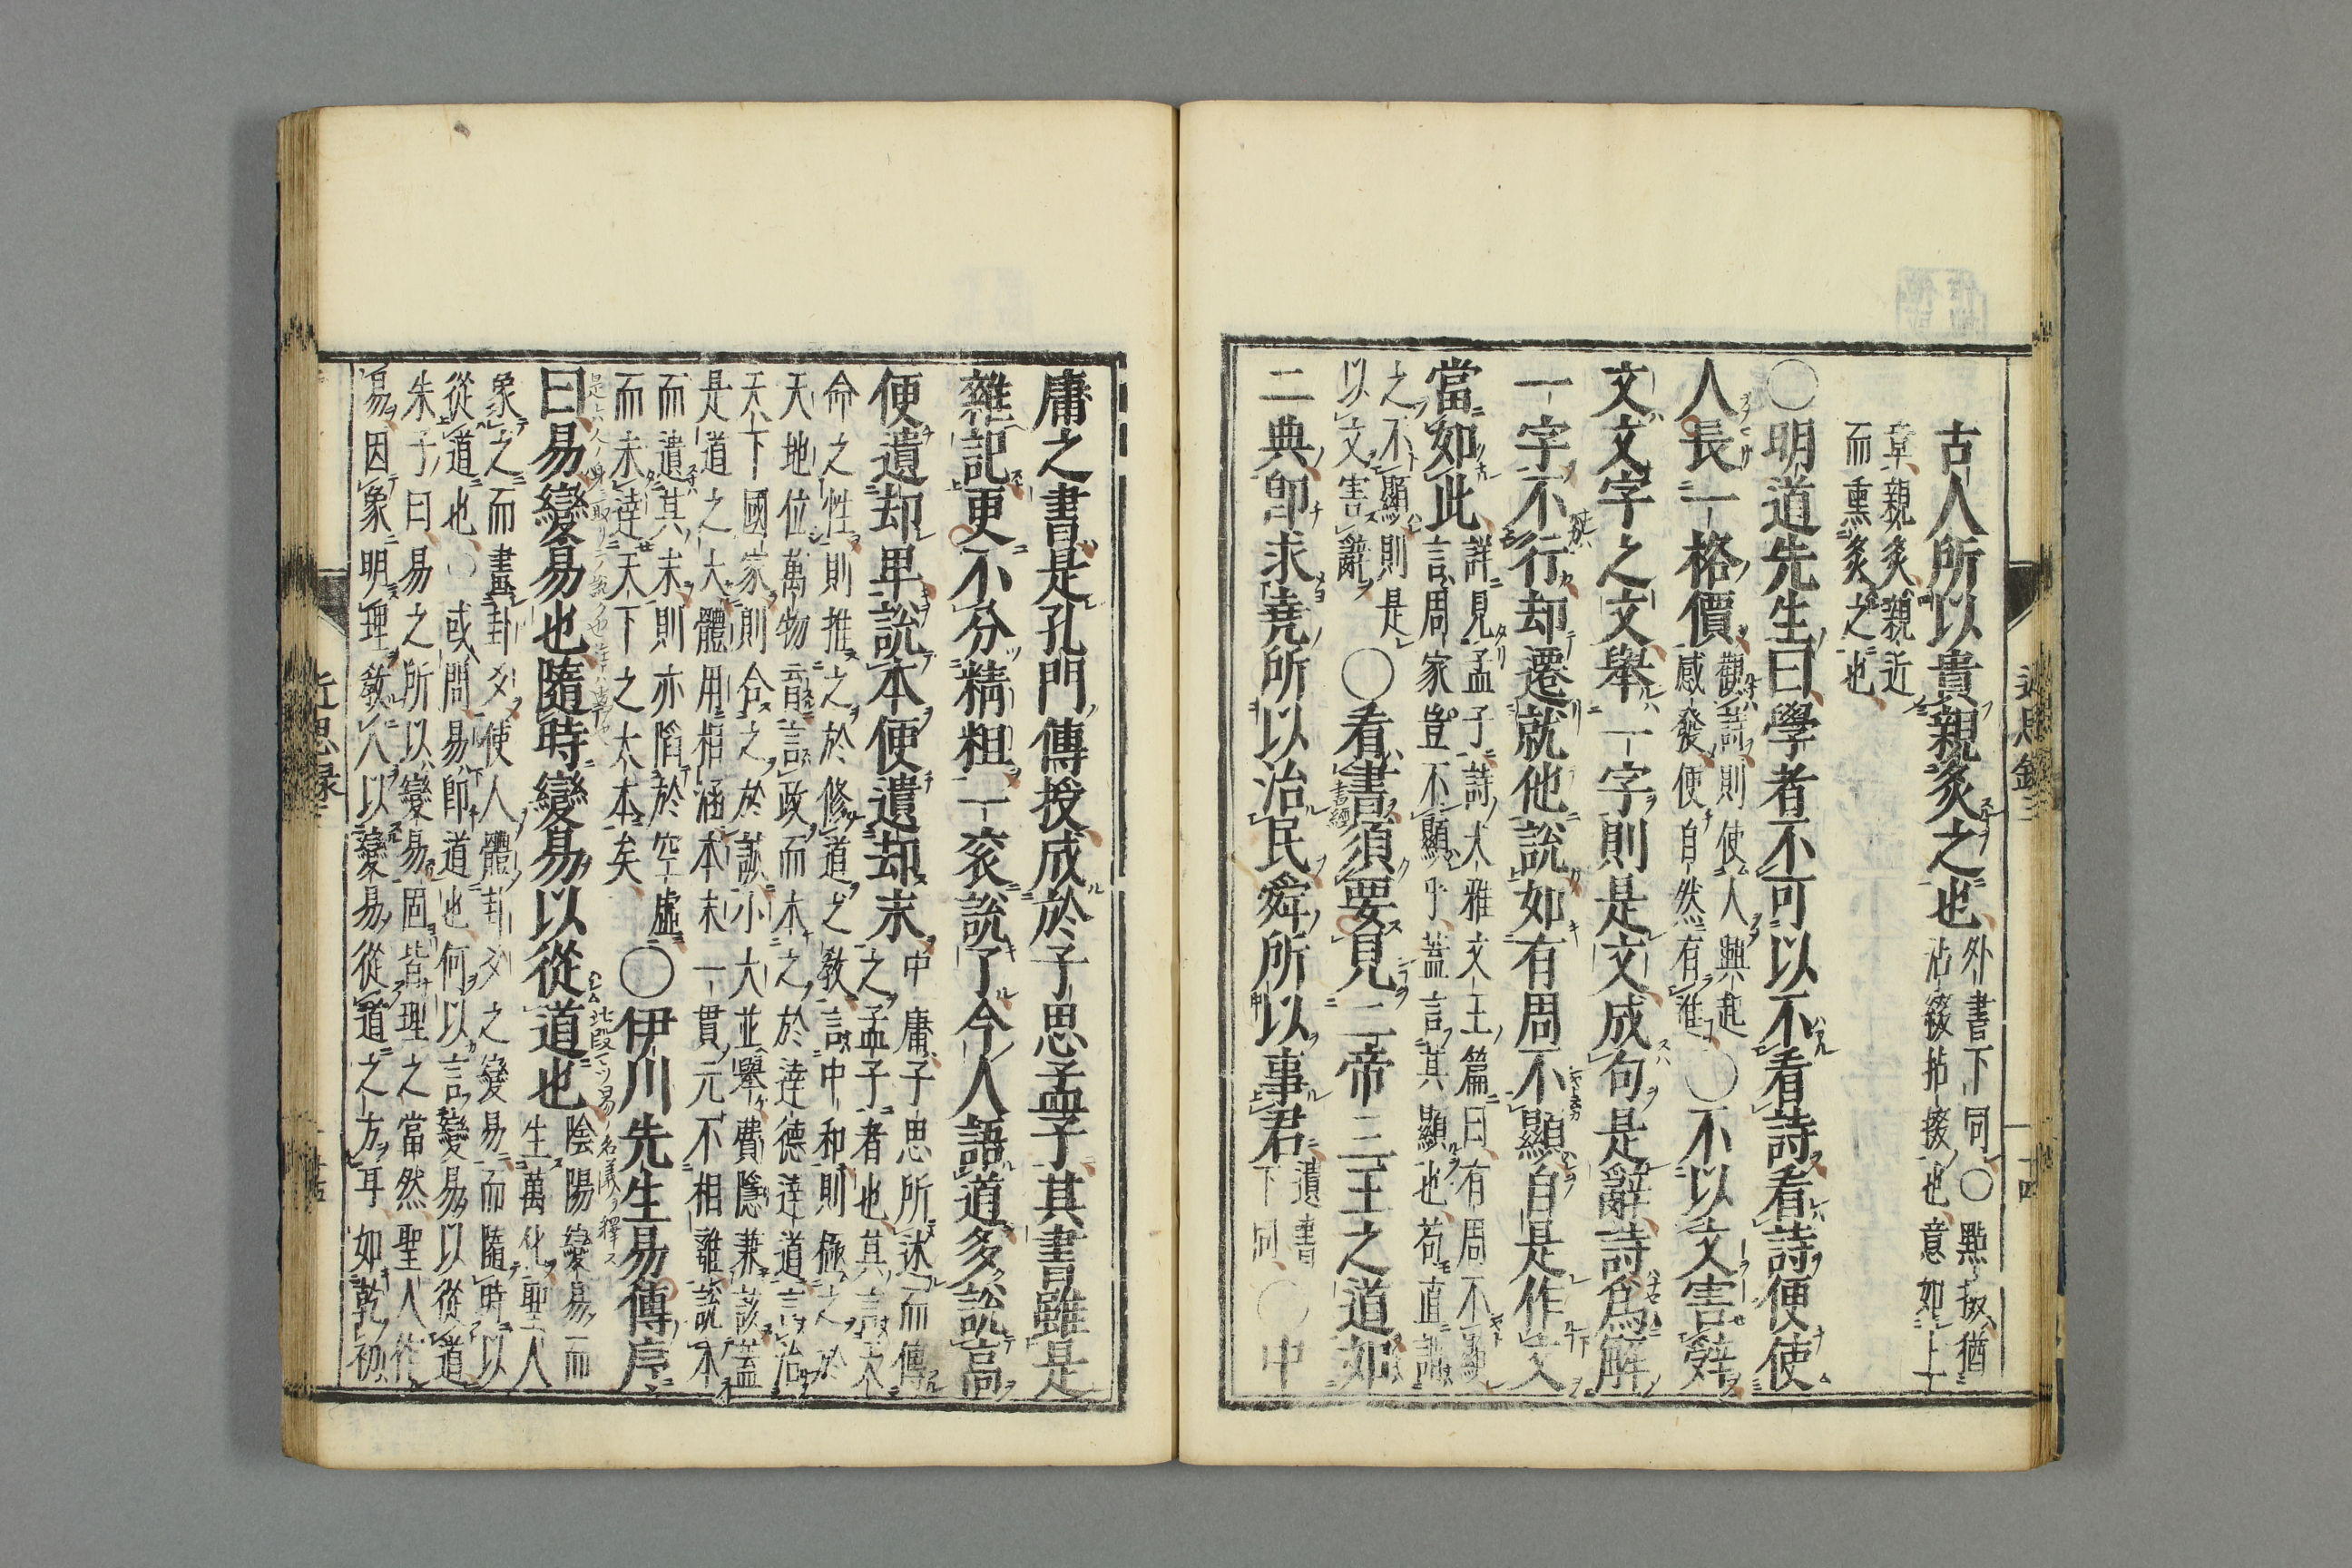 古人所以貴親炙之也外書下同○點掇猶
沾綴拈掇也意如上
章親炙親近
而熏炙之也
○明道先生曰學者不可以不看詩看詩便使
人長一格價觀詩則使人興起
感發便自然有進○不以文害辭
文文字之文舉一字則是文成句是辭詩爲解
一字不行却遷就他說如有周不顯自是作文
當如此詳見孟子詩大雅文王篇曰有周不顯
言周家豈不顯乎蓋言其顯也苟直謂
之不顯則是
以文害辭○看書須要見二帝三王之道如
二典即求堯所以治民舜所以事君遺書
下同○中
近思錄三
十四
庸之書是孔門傳授成於子思孟子其書雖是
雜記更不分精粗一衮說了今人語道多說高
便遺却卑說本便遺却末中庸子思所述而傳
之孟子者也其言天
命之性則推之於修道之教言中和則極之於
天地位萬物育言政而本之於達德達道言治
天下國家則合之於誠小大並舉費隱兼該蓋
是道之大體用相涵本末一貫元不相離說本
而遺其末則亦陷於空虛
而未達天下之大本矣○伊川先生易傳序
曰易變易也隨時變易以從道也陰陽變易而
生萬化聖人
象之而畫卦爻使人體卦爻之變易而隨時以
從道也○或問易即道也何以言變易以從道
朱子曰易之所以變易固皆理之當然聖人作
易因象明理教人以變易從道之方耳如乾初
近思録三